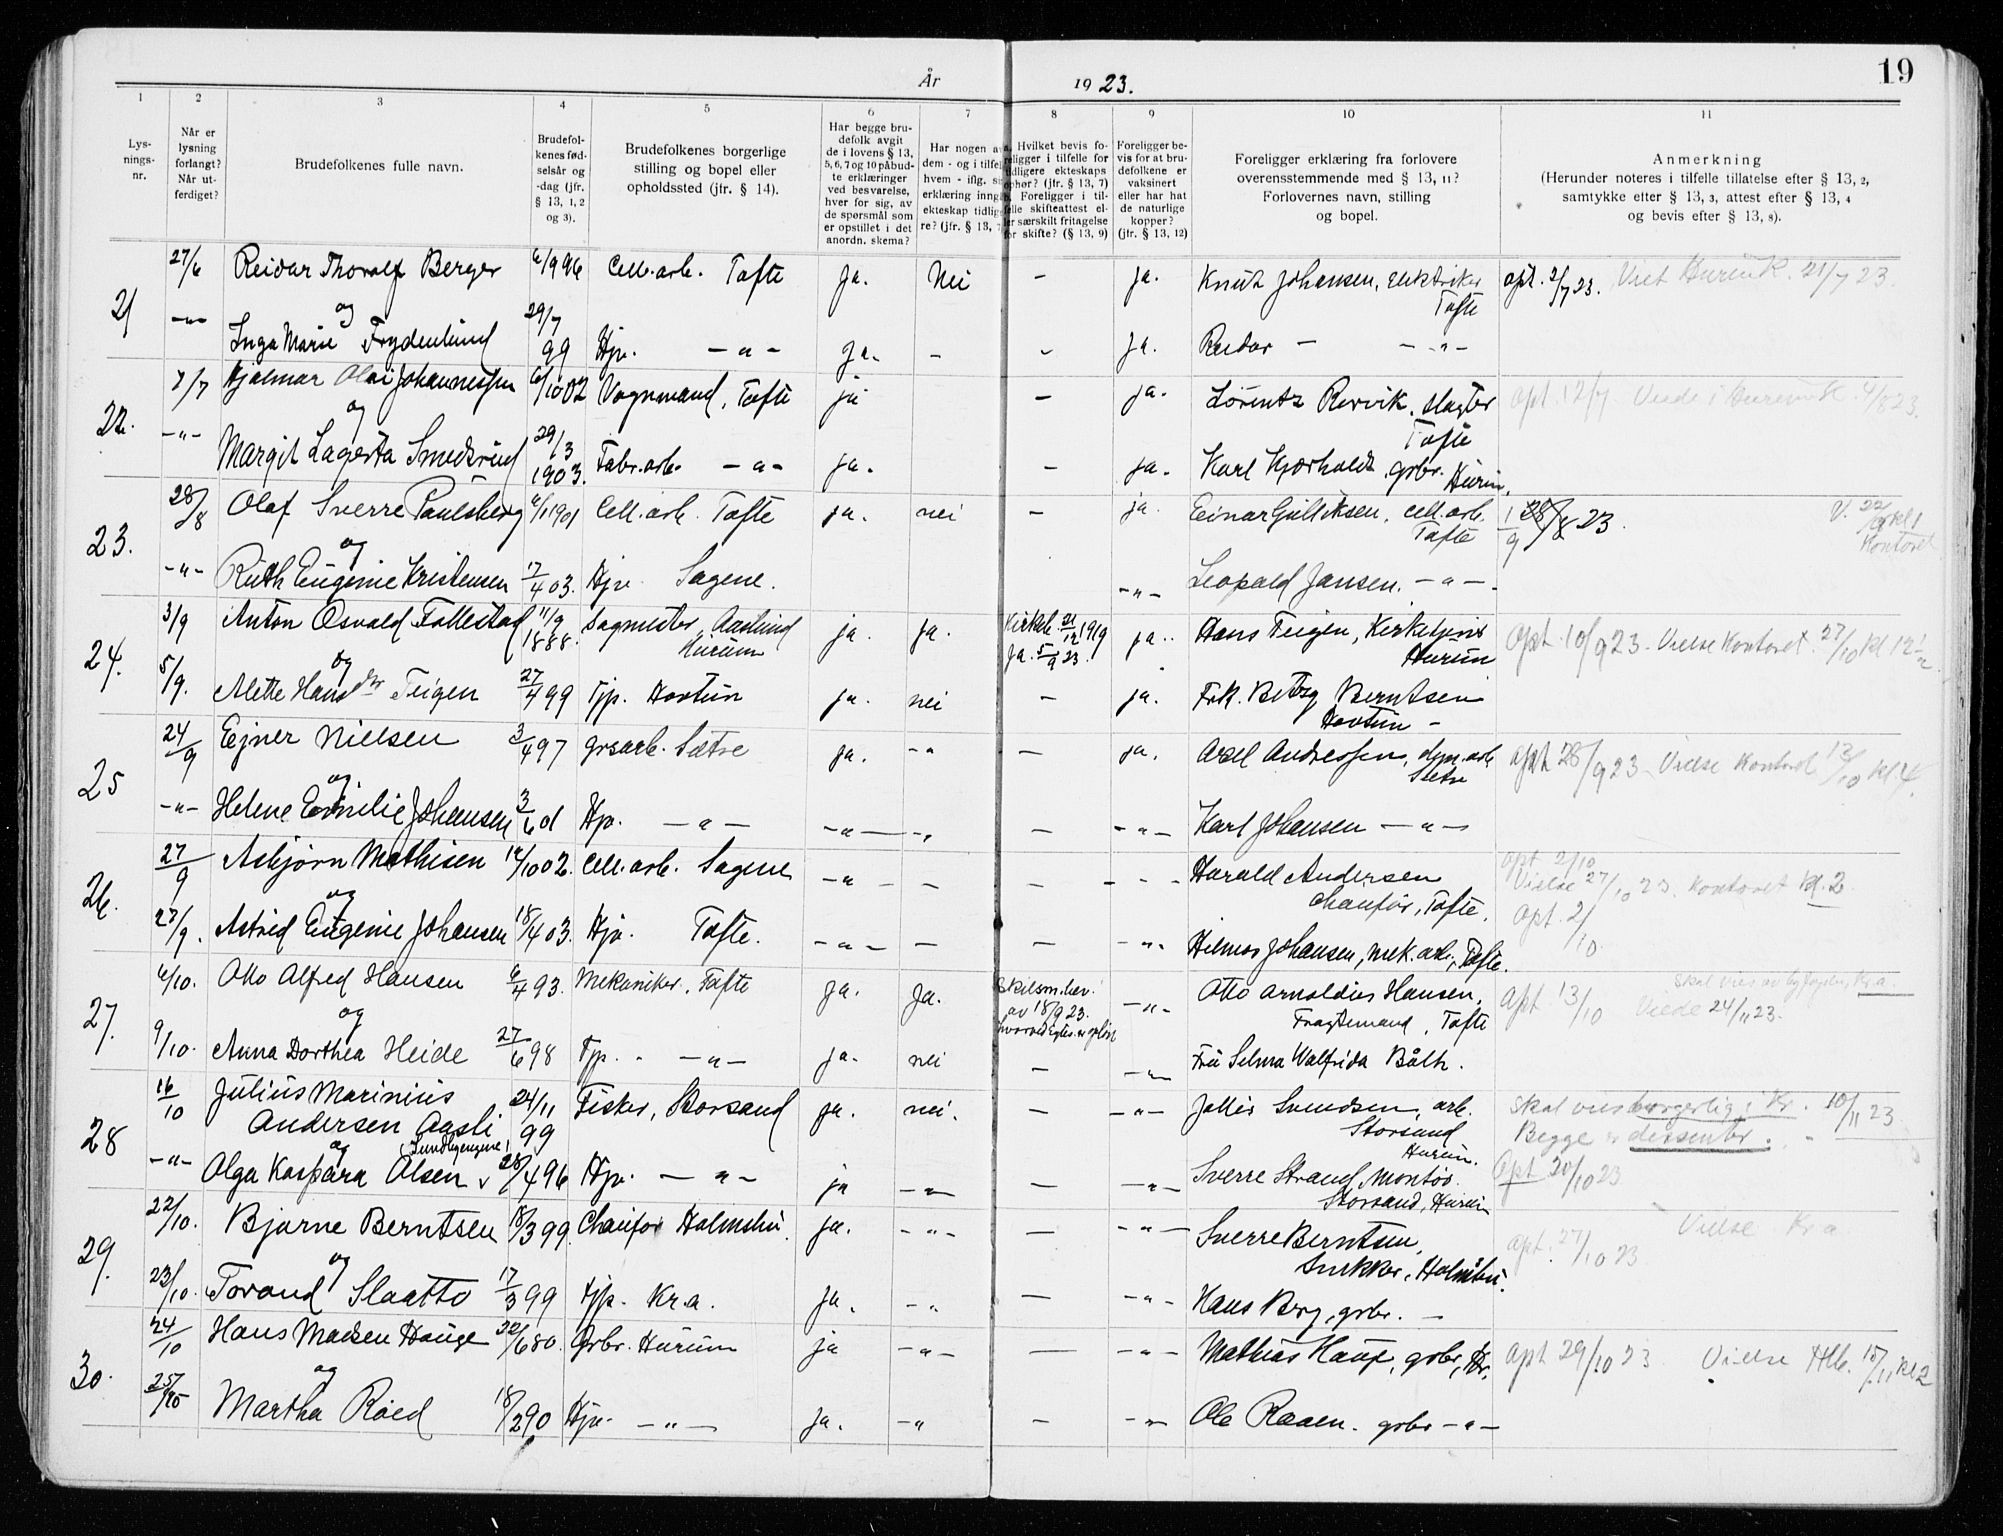 19
År 1923.
1 2 3 4 5 6 7 8 9 10 11
Lys-
nings-
nr.
Når er
lysning
forlangt?
Når ut-
ferdiget?
Brudefolkenes fulle navn.
Brudefol-
kenes fød-
selsår og
-dag (jfr.
§ 13, 1, 2
og 3).
Brudefolkenes borgerlige
stilling og bopel eller
opholdssted (jfr. § 14).
Har begge bru-
defolk avgit
de i lovens § 13,
5, 6, 7 og 10 påbud-
te erklæringer
ved besvarelse,
hver for sig, av
de spørsmål som
er opstillet i det
anordn. skema?
Har nogen av
dem - og i tilfel
hvem - iflg. si
erklæring inngå
ekteskap tidlig
re? (jfr. § 13, 7
Hvilket bevis fo-
religger i tilfelle for
tidligere ekteskaps
ophør? (jfr. § 13, 7)
Foreligger i til-
felle skifteattest el-
ler særskilt fritagelse
for skifte? (§ 13, 9)
Foreligger be-
vis for at bru-
defolkene er
vaksinert
eller har hat
de naturlige
kopper?
(jfr. § 13, 12)
Foreligger erklæring fra forlovere
overensstemmende med § 13, 11?
Forlovernes navn, stilling
og bopel.
Anmerkning
(Herunder noteres i tilfelle tillatelse efter § 13, 2,
samtykke efter § 13, 3, attest efter § 13, 4
og bevis efter § 13, 8).
21 27/6 Reidar Thoralf Berger 6/9 96 Cell.arb. Tofte Ja. Nei - ja. Knut Johansen, elektriker Tofte opt. 2/7 23. Viet Hurum K. 21/7 23.
og
-"- Inga Marie Frydenlund 29/7 99 Hjv. -"- Ja. - - Ja. Reidar - -"-
22. 7/7 Hjalmar Olai Johannessen 6/10 02 Vognmand, Tofte ja - ja. Lorentz Rørvik, slagter Tofte opt. 12/7. Viede i Hurum K. 4/8 23.
og
-"- Margit Lagerta Smedsrud 29/3 1903. Fabr.arb. -"- ja. - ja. Karl Kjærholdt, grbr. Hurum.
23. 28/8 Olaf Sverre Paulsberg 6/1 1901 Cell.arb. Tofte ja. nei - ja. Einar Gulliksen, cell.arb. Tofte 1/9 28/8 23. V. 22/9 kl 1 Kontoret
og
-"- Ruth Eugenie Kristensen 17/4 03. Hjv. Sagene. -"- Leopold Jansen. -"-
24. 3/9 Anton Osvald Follestad 11/9 1888. Sagmester, Aaslund Hurum ja. ja. Kirkeb. 21/12 1919 Ja. 5/9 23. ja. Hans Teigen, Kirketjener Hurum Opt. 10/9 23. Vielse Kontoret 27/10 kl 12 1/2
og
5/9. Alette Hansdtr Teigen 27/4 99 Tjp. Hovtun ja. nei - ja. Frk. Betsy Berntsen Hovtun -
25 24/9 Ejner Nielsen 3/4 97 grsarb. Sætre ja. -" - ja. Axel Andressen, dyn.arb Sætre opt 28/9 23. Vielse Kontoret 13/10 kl 4.
og
-"- Helene Emilie Johansen 3/6 01 Hjv. -"- -"- -"- - -"- Karl Johansen -"-
26. 27/9 Asbjørn Mathisen 14/10 02. Cell.arb. Sagene -"- - - - - - Harald Andersen Chauffør, Tofte. opt 2/10 Vielse 27/10 23. Kontoret kl. 2.
og
27/9. Astrid Eugenie Johansen 18/4 03. Hjv. Tofte. -"- - - -"- Hilmar Johansen, mek.arb., Tofte. Opt. 2/10.
27. 6/10. Otto Alfred Hansen 6/4 93. Mekaniker, Tofte Ja. Ja. Skilsm.bev. av 18/9 23. -"- Otto Arnoldius Hansen, Fragtemand, Tofte Opt 13/10 Viede 24/11 23.
og
9/10. Anna Dorthea Heide 27/6 98 Tjp. -"- ja. nei - -"- Fru Selma Walfrida Båth.
28 16/10 Julius Marinius Andersen Aasli 24/11 99 Fisker, Storsand ja. nei. - -"- Julius Svendsen, arb. Storsand Hurum. Skal vies borgerlig i Kr. 10/11 23 Begge er dissenter.
og
-"- Olga Kaspara Olsen 28/4 96 Hjv. -"- ja -"- - -"- Sverre Strand, Montør. Storsand, Hurum Opt 20/10 23
29. 22/10. Bjarne Berntsen 18/3 99. Chauffør Holmsbu. ja. -"- - -"- Sverre Berntsen, Snekker, Holmsbu. opt. 27/10 23 Vielse Kr.a
og
23/10. Torand Slaatto 17/3 99 Hjp. Kr.a. Ja. -"- - -"- Hans Berg, grbr. -
30. 24/10 Hans Madsen Hauge 22/6 80. Grbr. Hurum ja -"- - -"- Mathias Haug, grbr, Hr. Opt 29/10 23 Vielse Hlb. 15/11 kl 2
og
25/10 Martha Røed 18/2 90 Hjv. -"- Ja. -" - -"- Ole Raaen. grbr -"-